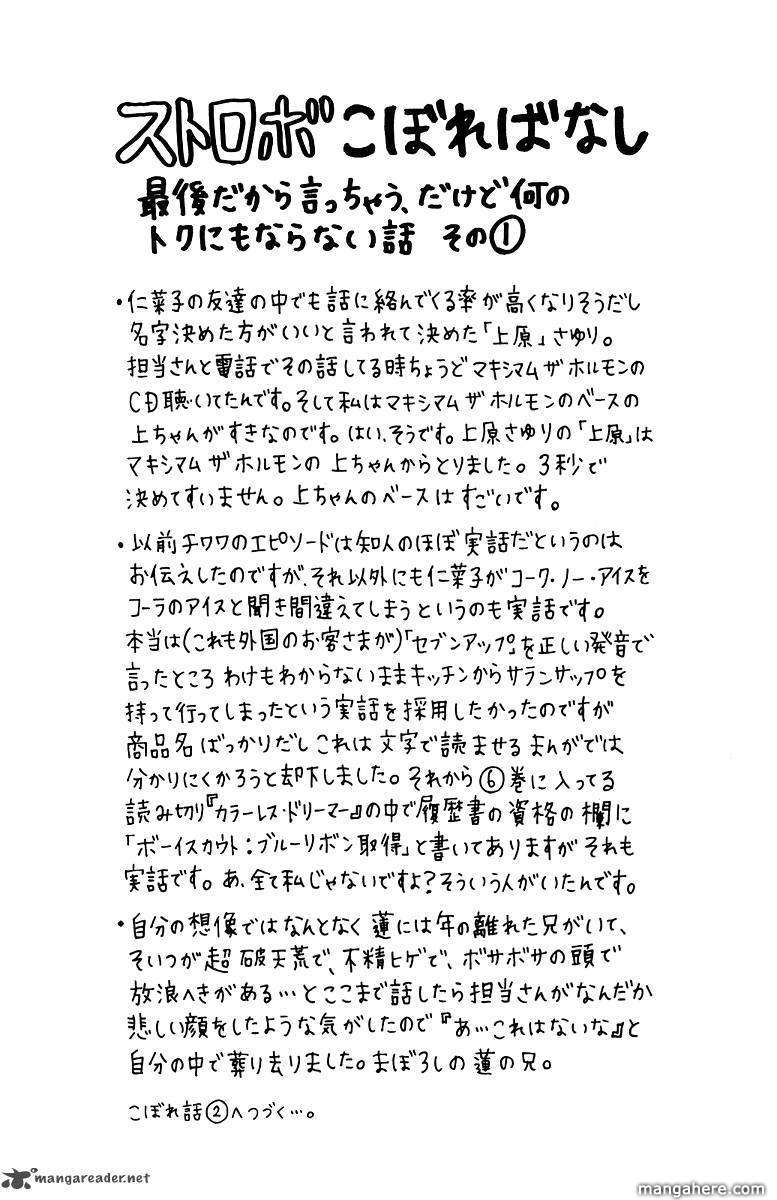 ストロボこぼればなし
最後だから言っちゃう、だけど何の
トクにもならない話 その①
・仁菜子の友達の中でも話に絡んでくる率が高くなりそうだし
名字決めた方がいいと言われて決めた「上原」さゆり。
担当さんと電話でその話してる時ちょうどマキシマム ザ ホルモンの
CD聴いてたんです。そして私はマキシマム ザ ホルモンのベースの
上ちゃんがすきなのです。はい、そうです。上原さゆりの「上原」は
マキシマム ザ ホルモンの 上ちゃんからとりました。3秒で
決めてすいません。上ちゃんのベースは すごいです。
・以前チワワのエピソードは知人のほぼ実話だというのは
お伝えしたのですが、それ以外にも仁菜子がコーク・ノー・アイスを
コーラのアイスと聞き間違えてしまうというのも実話です。
本当は(これも外国のお客さまが)「セブンアップ」を正しい発音で
言ったところ わけもわからないままキッチンからサランサップを
持って行ってしまったという実話を採用したかったのですが
商品名 ばっかりだし これは 文字で読ませる まんがでは
分かりにくかろうと却下しました。それから⑥巻に入ってる
読み切り『カラーレス・ドリーマー』の中で履歴書の資格の欄に
「ボーイスカウト:ブルーリボン取得」と書いてありますが それも
実話です。あ、全て私じゃないですよ?そういう人がいたんです。
・自分の想像ではなんとなく 蓮には年の離れた兄がいて、
そいつが超 破天荒で、不精ヒゲで、ボサボサの頭で
放浪へきがある…とここまで話したら担当さんがなんだか
悲しい顔をしたような気がしたので『あ…これはないな』と
自分の中で葬り去りました。まぼろしの 蓮の兄。
こぼれ話②へつづく…。
mangareader.net
mangahere.com